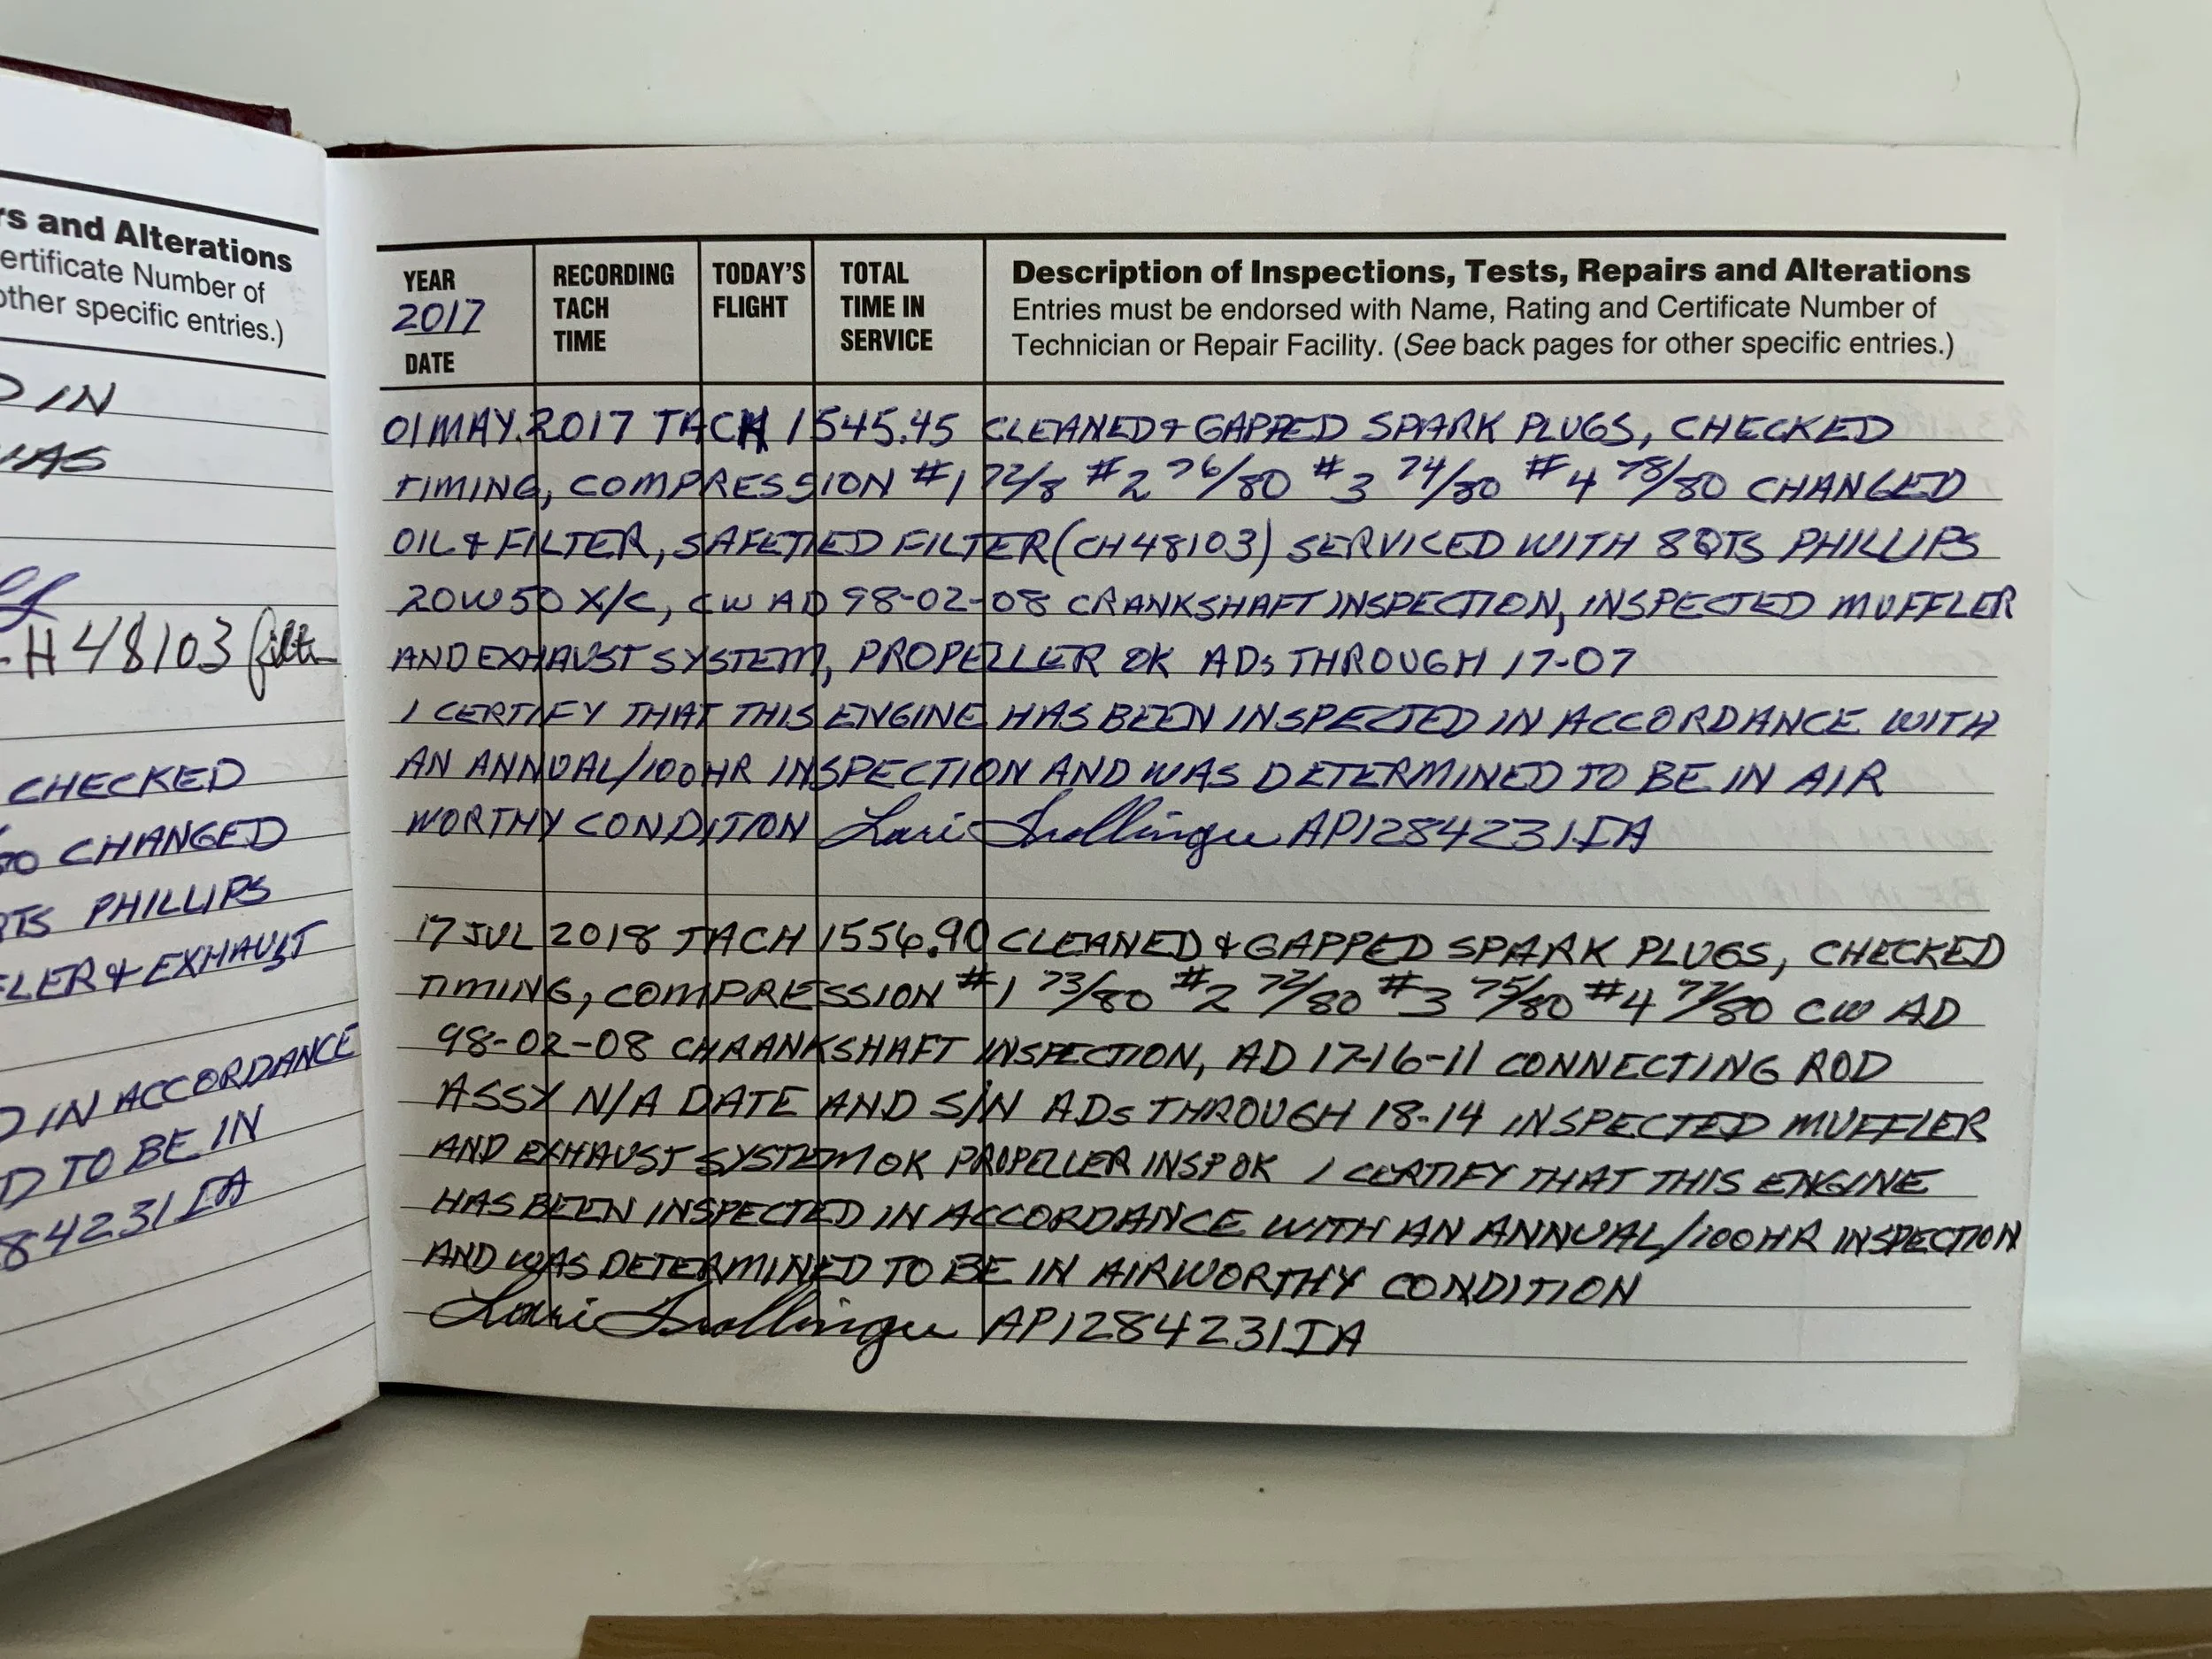 rs and Alterations
ertificate Number of
other specific entries.)
D IN
WAS
H48103 filter
CHECKED
80 CHANGED
QTS PHILLIPS
FLER & EXHAUST
D IN ACCORDANCE
D TO BE IN
84231 IA
YEAR
2017
DATE
RECORDING
TACH
TIME
TODAY'S
FLIGHT
TOTAL
TIME IN
SERVICE
Description of Inspections, Tests, Repairs and Alterations
Entries must be endorsed with Name, Rating and Certificate Number of
Technician or Repair Facility. (See back pages for other specific entries.)
01 MAY. 2017 TACH 1545.45 CLEANED & GAPPED SPARK PLUGS, CHECKED
TIMING, COMPRESSION #1 72/8 #2 76/80 #3 74/80 #4 78/80 CHANGED
OIL & FILTER, SAFETIED FILTER (CH48103) SERVICED WITH 8QTS PHILLIPS
20W50 X/C, CW AD 98-02-08 CRANKSHAFT INSPECTION, INSPECTED MUFFLER
AND EXHAUST SYSTEM, PROPELLER OK ADs THROUGH 17-07
I CERTIFY THAT THIS ENGINE HAS BEEN INSPECTED IN ACCORDANCE WITH
AN ANNUAL/100HR INSPECTION AND WAS DETERMINED TO BE IN AIR
WORTHY CONDITION Lori Trollinger AP1284231IA
17 JUL 2018 TACH 1556.90 CLEANED & GAPPED SPARK PLUGS, CHECKED
TIMING, COMPRESSION #1 73/80 #2 72/80 #3 75/80 #4 77/80 CW AD
98-02-08 CHAANKSHAFT INSPECTION, AD 17-16-11 CONNECTING ROD
ASSY N/A DATE AND S/N ADs THROUGH 18-14 INSPECTED MUFFLER
AND EXHAUST SYSTEM OK PROPELLER INSP OK I CERTIFY THAT THIS ENGINE
HAS BEEN INSPECTED IN ACCORDANCE WITH AN ANNUAL/100HR INSPECTION
AND WAS DETERMINED TO BE IN AIRWORTHY CONDITION
Lori Trollinger AP1284231IA